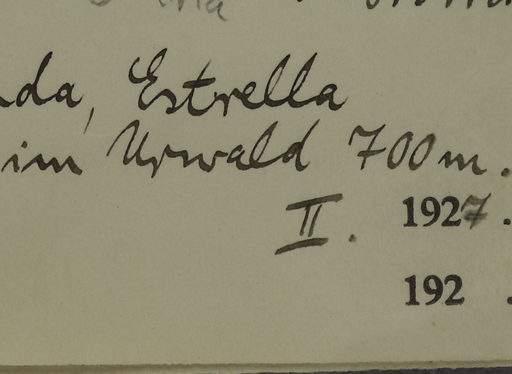 nda, Estrella
im Urwald 700m.
II. 1927.
192 .